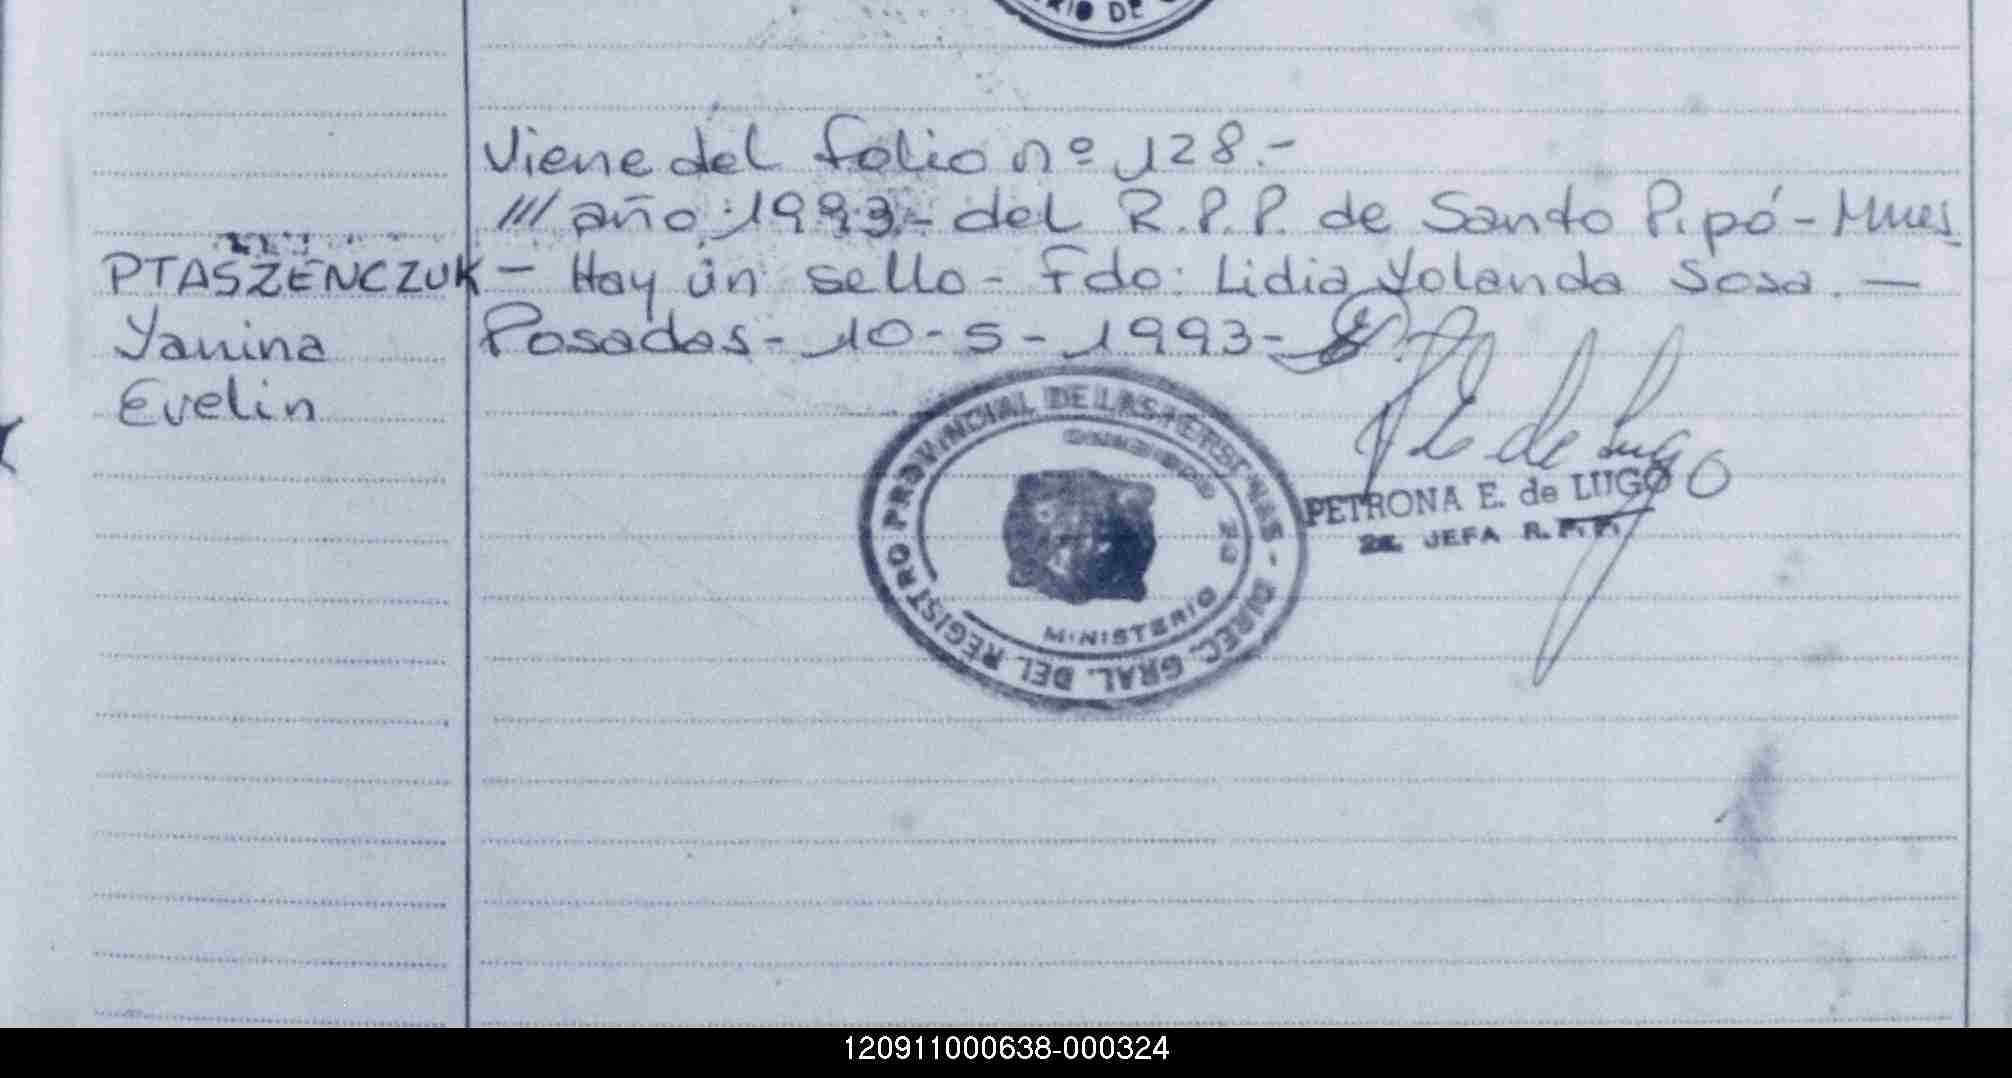 RIO DE
Viene del folio nº 128.-
/// año 1993.- del R.P.P. de Santo Pipó - Mnes.
PTASZENCZUK - Hay ún sello - Fdo: Lidia Yolanda Sosa. —
Yanina Posadas - 10 - 5 - 1993 -
Evelin
DIREC. GRAL. DEL REGISTRO PROVINCIAL DE LAS PERSONAS -
MINISTERIO
P E de Lugo
PETRONA E. de LUGO
2a. JEFA R.P.P.
120911000638-000324